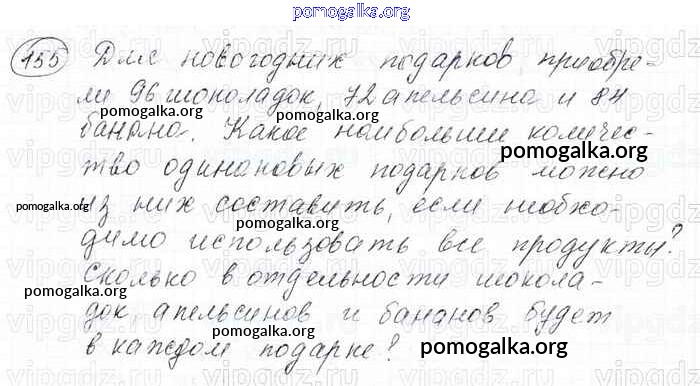 pomogalka.org
155 Для новогодних подарков приобре-
ли 96 шоколадок, 72 апельсина и 84
pomogalka.org
банана. Какое наибольшее количес-
pomogalka.org
тво одинаковых подарков можно
pomogalka.org
из них составить, если необхо-
pomogalka.org
димо использовать все продукты?
Сколько в отдельности шокола-
pomogalka.org
док, апельсинов и бананов будет
pomogalka.org
в каждом подарке?
pomogalka.org